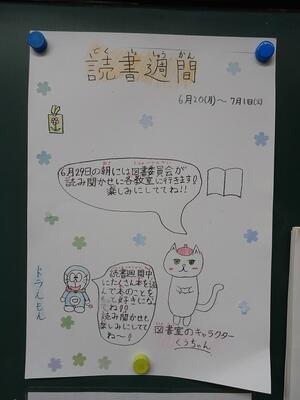 どく しょ しゅう かん
読書週間
6月20(月)～7月1日
6月29日の朝には図書委員会が
読み聞かせに各教室に行きます!
楽しみにしててね!!
読書週間中
にたくさん本を読
んで本のことを
もっと好きになっ
てね!!
読み聞かせも
楽しみにしてて
ね〜!
ドラえもん
図書室のキャラクター
くうちゃん